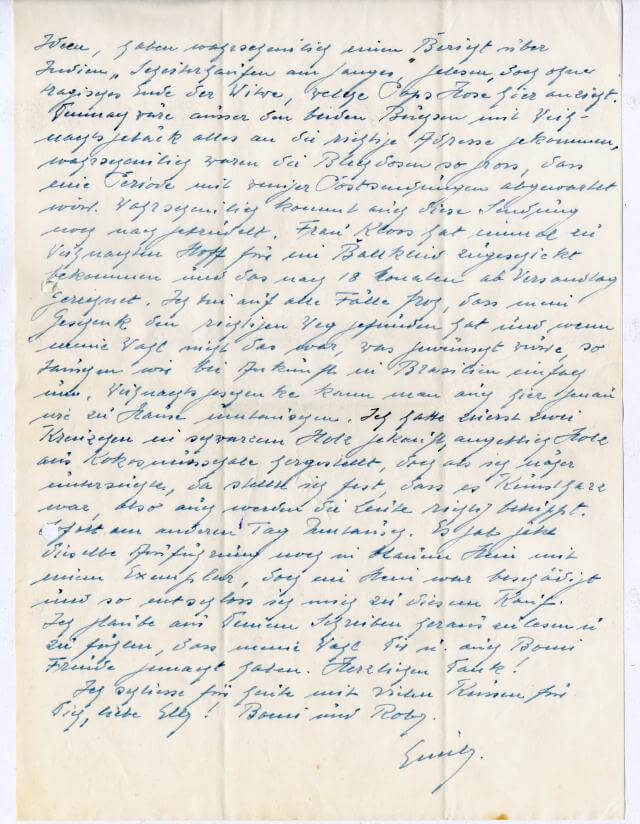 Ideen, haben wahrscheinlich einen Bericht über
Indien „Scheiterhaufen am Ganges" gelesen, doch ohne
tragisches Ende der Witwe, welche Paps Hose hier anzieht.
Demnach wäre ausser den beiden Büchsen mit Weih-
nachtsgebäck alles an die richtige Adresse gekommen,
wahrscheinlich waren die Blechdosen so gross, dass
eine Periode mit weniger Postsendungen abgewartet
wird. Wahrscheinlich kommt auch diese Sendung
noch nachgetrudelt. Frau Kloss hat einmal zu
Weihnachten Stoff für ein Ballkleid zugeschickt
bekommen und das nach 18 Monaten ab Versandtag
gerechnet. Ich bin auf alle Fälle froh, dass mein
Geschenk den richtigen Weg gefunden hat und wenn
meine Wahl nicht das war, was gewünscht würde, so
tauschen wir bei Ankunft in Brasilien einfach
um, Weihnachtsgeschenke kann man auch hier genau
wie zu Hause umtauschen. Ich hatte zuerst zwei
Kreuzchen in schwarzem Holz gekauft, angeblich Holz
aus Kokosnusschale hergestellt, doch als ich näher
untersuchte, da stellte ich fest, dass es Kunstharz
war, also auch werden die Leute richtig betuppt.
Sofort am anderen Tag Umtausch. Es gab jetzt
dieselbe Ausführung noch in blauem Stein mit
einem Exemplar, doch ein Stein war beschädigt
und so entschloss ich mich zu diesem Kauf.
Ich glaube aus Deinem Schreiben heraus zu lesen u
zu fühlen, dass meine Wahl Dir u. auch Bomi
Freude gemacht haben. Herzlichen Dank!
Ich schliesse für heute mit vielen Küssen für
Dich, liebe Elly! Bomi und Roby.